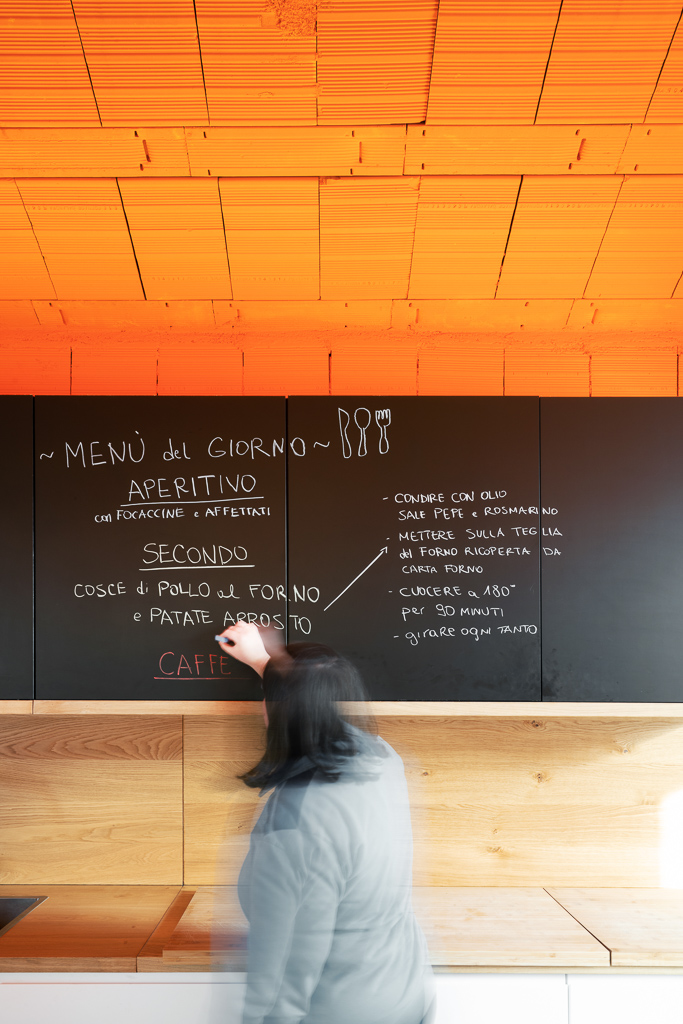 ~ MENÙ del GIORNO ~
APERITIVO
con FOCACCINE e AFFETTATI
SECONDO
COSCE di POLLO al FORNO
e PATATE ARROSTO
CAFFE
- CONDIRE CON OLIO
SALE PEPE e ROSMARINO
- METTERE SULLA TEGLIA
del FORNO RICOPERTA DA
CARTA FORNO
- CUOCERE a 180°
per 90 MINUTI
- girare ogni TANTO